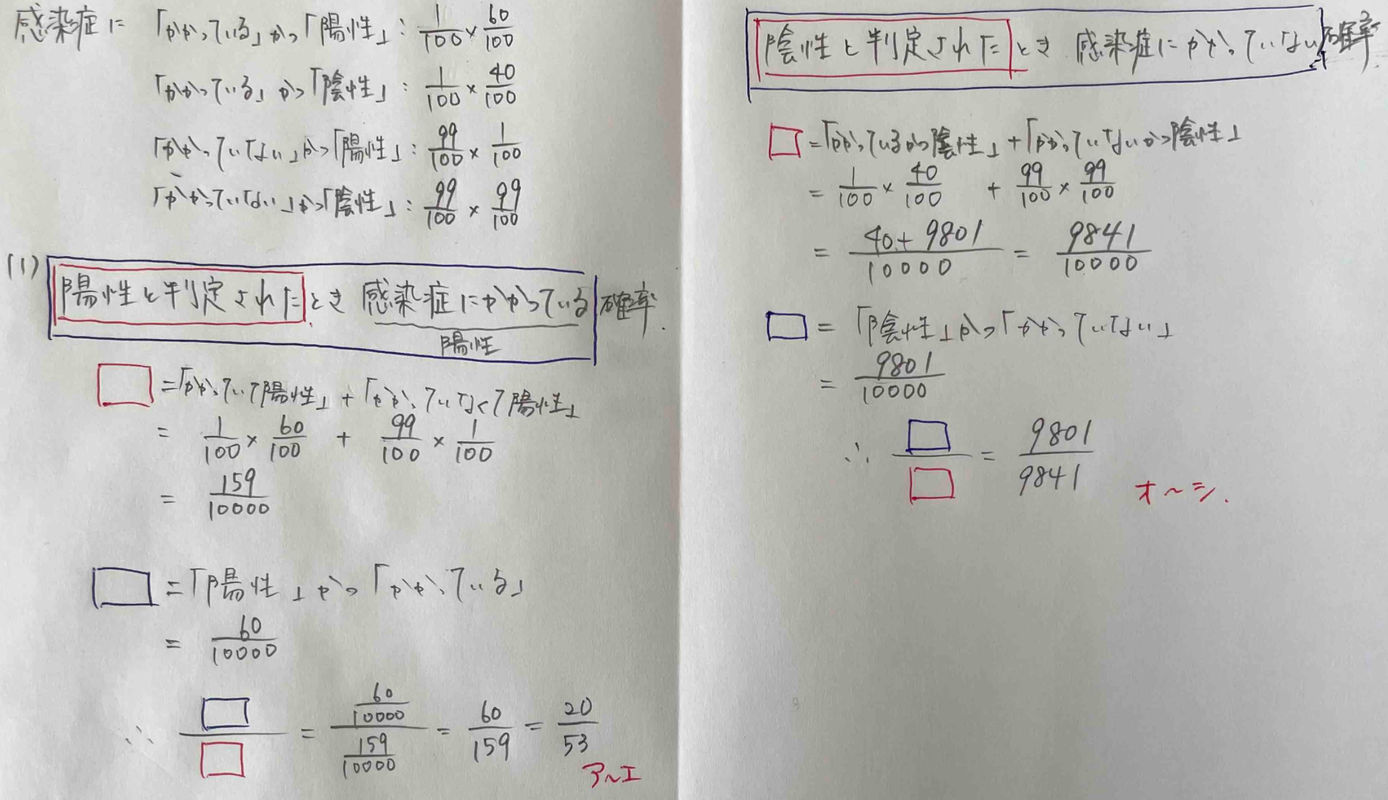 感染症に 「かかっている」かつ「陽性」: 1/100 × 60/100
「かかっている」かつ「陰性」: 1/100 × 40/100
「かかっていない」かつ「陽性」: 99/100 × 1/100
「かかっていない」かつ「陰性」: 99/100 × 99/100
(1) 陽性と判定されたとき 感染症にかかっている確率.
陽性
□ =「かかっていて陽性」+「かかっていなくて陽性」
= 1/100 × 60/100 + 99/100 × 1/100
= 159/10000
□ =「陽性」かつ「かかっている」
= 60/10000
∴ □/□ = (60/10000)/(159/10000) = 60/159 = 20/53
ア〜エ
陰性と判定されたとき 感染症にかかっていない確率.
□ =「かかっているかつ陰性」+「かかっていないかつ陰性」
= 1/100 × 40/100 + 99/100 × 99/100
= 40+9801/10000 = 9841/10000
□ = 「陰性」かつ「かかっていない」
= 9801/10000
∴ □/□ = 9801/9841
オ〜シ.